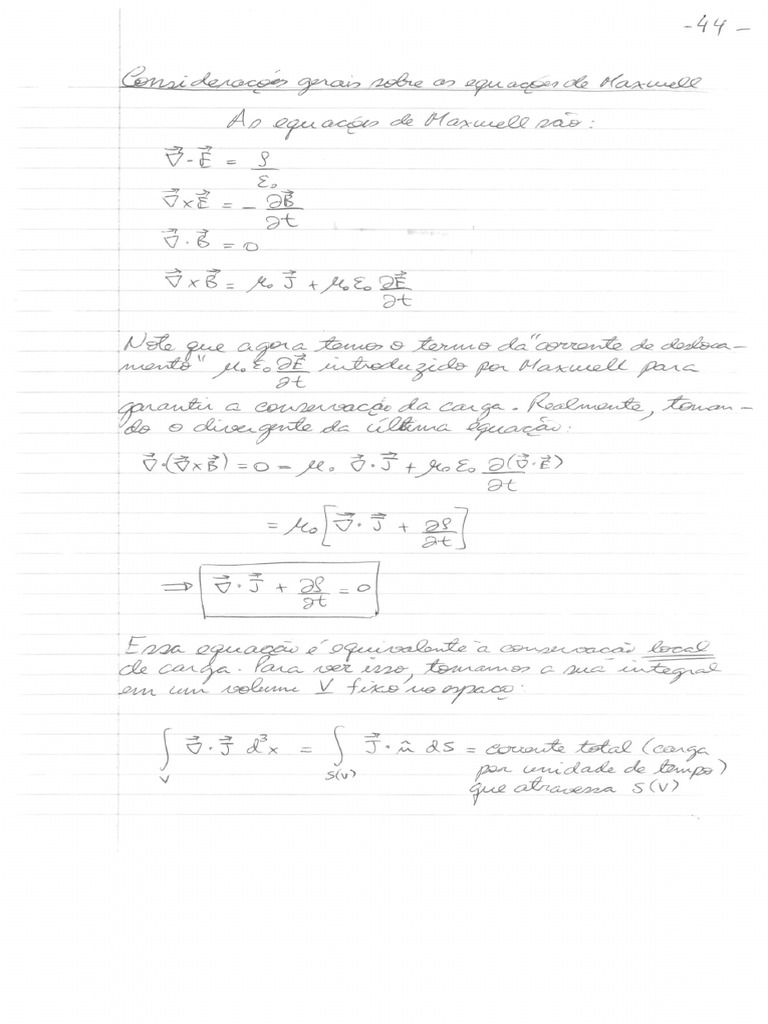 -44-
Considerações gerais sobre as equações de Maxwell
As equações de Maxwell são:
∇⃗·E⃗ = ρ/ε₀
∇⃗×E⃗ = -∂B⃗/∂t
∇⃗·B⃗ = 0
∇⃗×B⃗ = μ₀ J⃗ + μ₀ε₀ ∂E⃗/∂t
Note que agora temos o termo da "corrente de desloca-
mento" μ₀ε₀ ∂E⃗/∂t introduzido por Maxwell para
garantir a conservação da carga. Realmente, toman-
do o divergente da última equação:
∇⃗·(∇⃗×B⃗) = 0 = μ₀ ∇⃗·J⃗ + μ₀ε₀ ∂(∇⃗·E⃗)/∂t
= μ₀[∇⃗·J⃗ + ∂ρ/∂t]
⟹ ∇⃗·J⃗ + ∂ρ/∂t = 0
Essa equação é equivalente à conservação local
de carga. Para ver isso, tomamos a sua integral
em um volume V fixo no espaço:
∫_V ∇⃗·J⃗ d³x = ∫_S(V) J⃗·n̂ dS = corrente total (carga
por unidade de tempo)
que atravessa S(V)